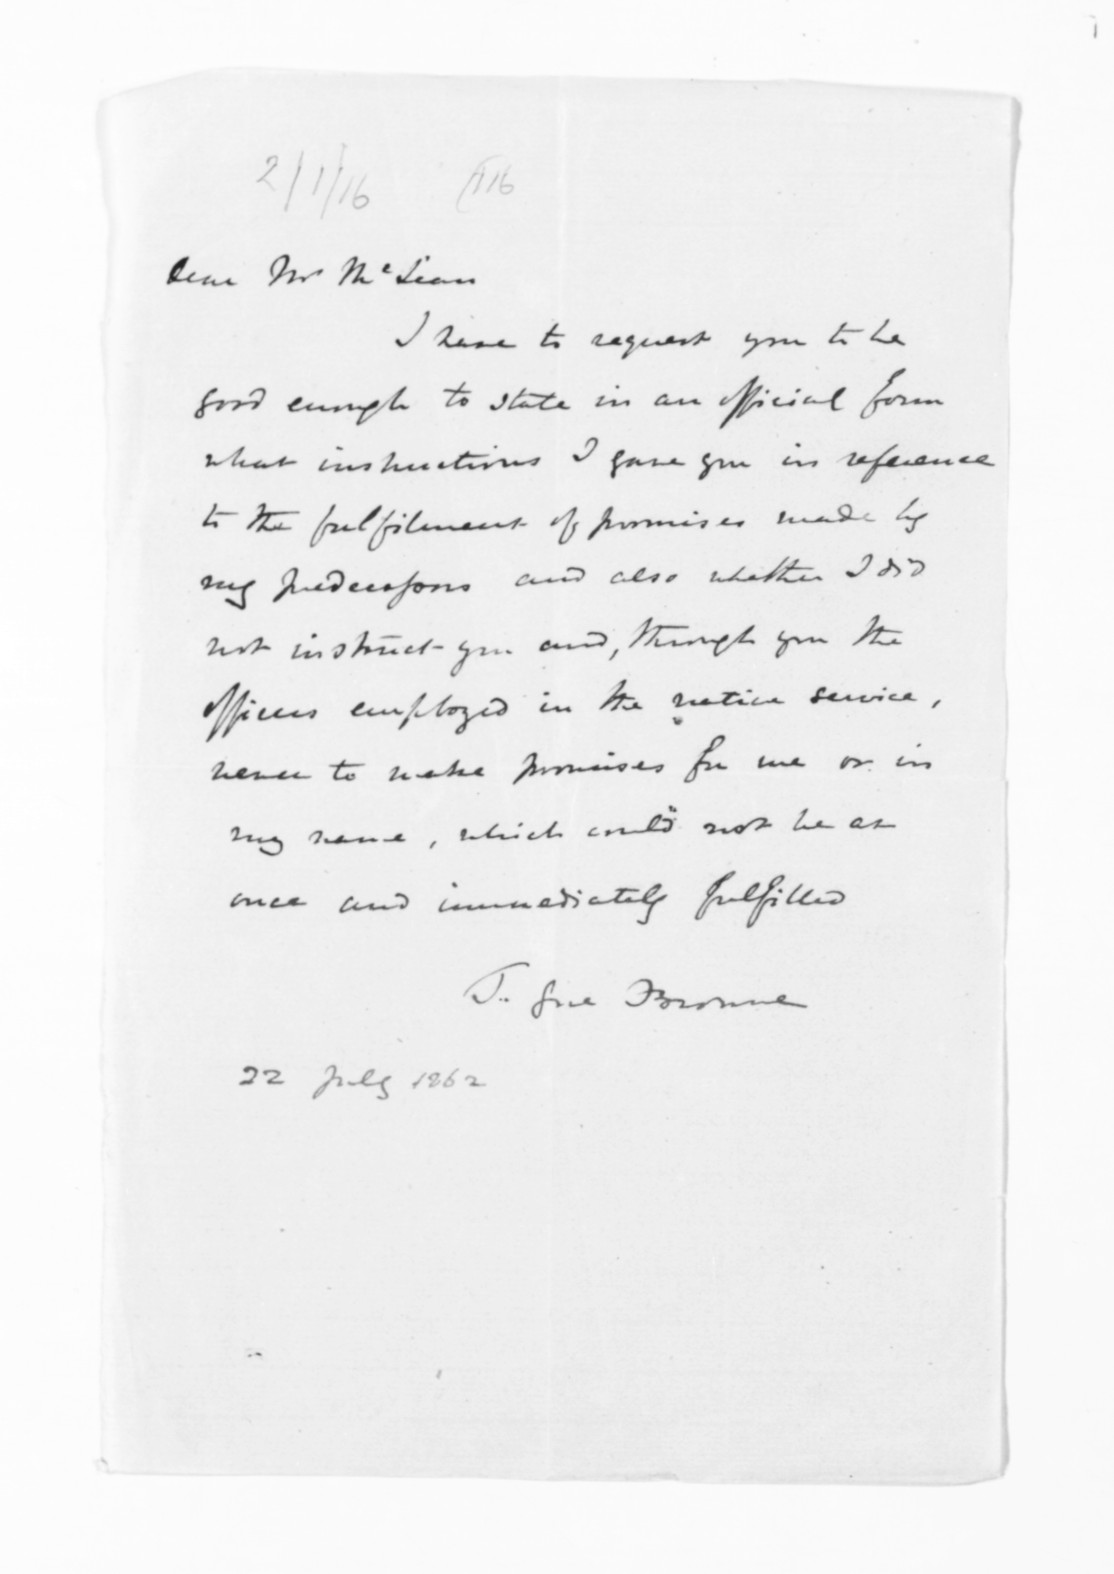 2/1/16 116
Dear Mr McLean
I have to request you to be
good enough to state in an official form
what instructions I gave you in reference
to the fulfilment of promises made by
my predecessors and also whether I did
not instruct you and, through you the
officers employed in the native service,
never to make promises for me or in
my name, which could not be at
once and immediately fulfilled
T. Gore Browne
22 July 1862